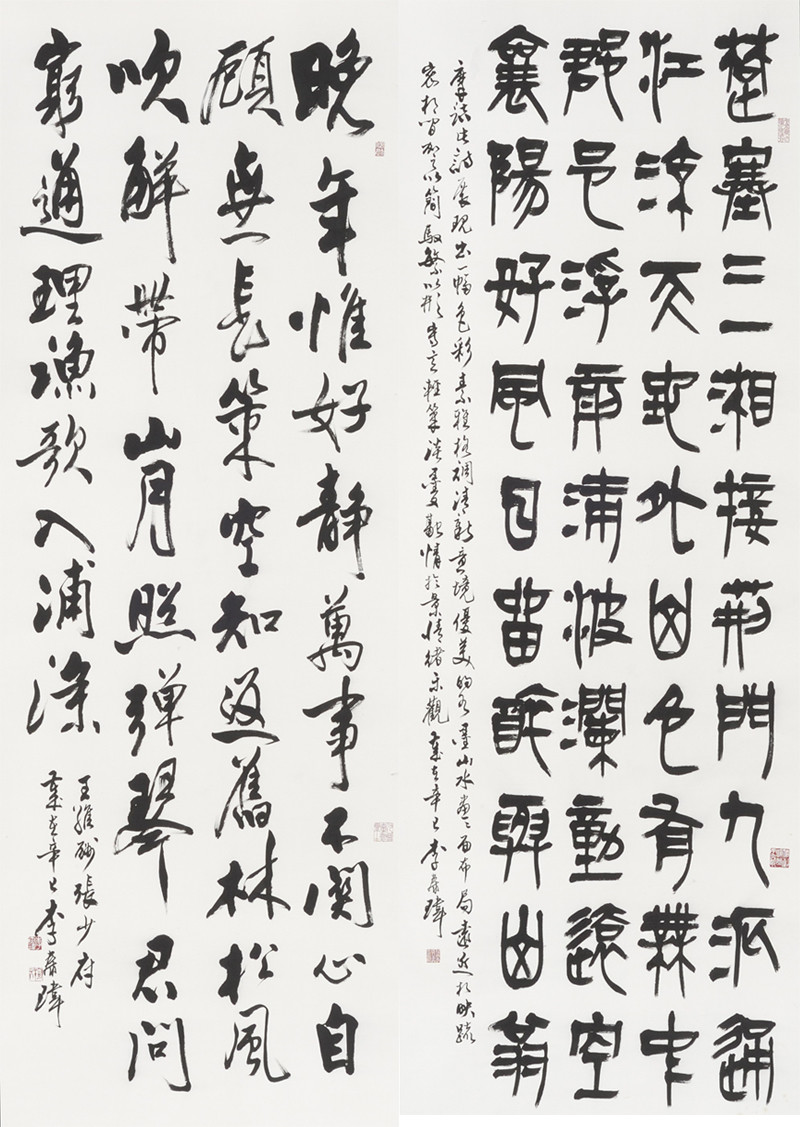 楚塞三湘接荊門九派通
江流天地外山色有無中
郡邑浮前浦波瀾動遠空
襄陽好風日留醉與山翁
摩詰此詩展現出一幅色彩素雅格調清新意境優美的水墨山水畫畫面布局遠近相映疏
密相間加之以簡馭繁以形寫意輕筆淡墨融情於景情緒樂觀 歲在辛巳 李瑋
晚年惟好靜萬事不関心自
顧無長策空知返舊林松風
吹解帶山月照彈琴君問
窮通理漁歌入浦深
王維酬張少府
歲在辛巳 李瑋